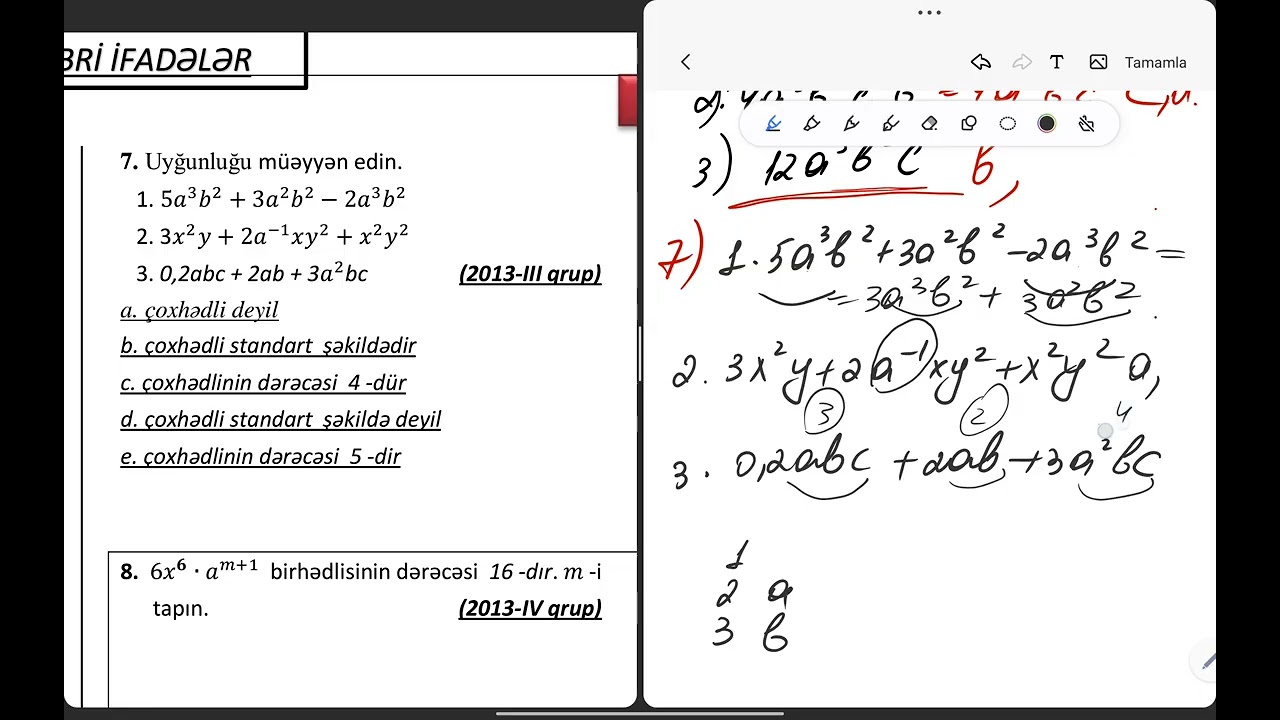 BRİ İFADƏLƏR
7. Uyğunluğu müəyyən edin.
1. 5a³b² + 3a²b² − 2a³b²
2. 3x²y + 2a⁻¹xy² + x²y²
3. 0,2abc + 2ab + 3a²bc (2013-III qrup)
a. çoxhədli deyil
b. çoxhədli standart şəkildədir
c. çoxhədlinin dərəcəsi 4 -dür
d. çoxhədli standart şəkildə deyil
e. çoxhədlinin dərəcəsi 5 -dir
8. 6x⁶ · aᵐ⁺¹ birhədlisinin dərəcəsi 16 -dır. m -i
tapın. (2013-IV qrup)
T Tamamla
3) 12a³b c b,
7) 1. 5a³b² + 3a²b² − 2a³b² =
= 3a³b² + 3a²b².
2. 3x²y + 2a⁻¹xy² + x²y² a,
3 2 4
3. 0,2abc + 2ab + 3a²bc
1
2 a
3 b